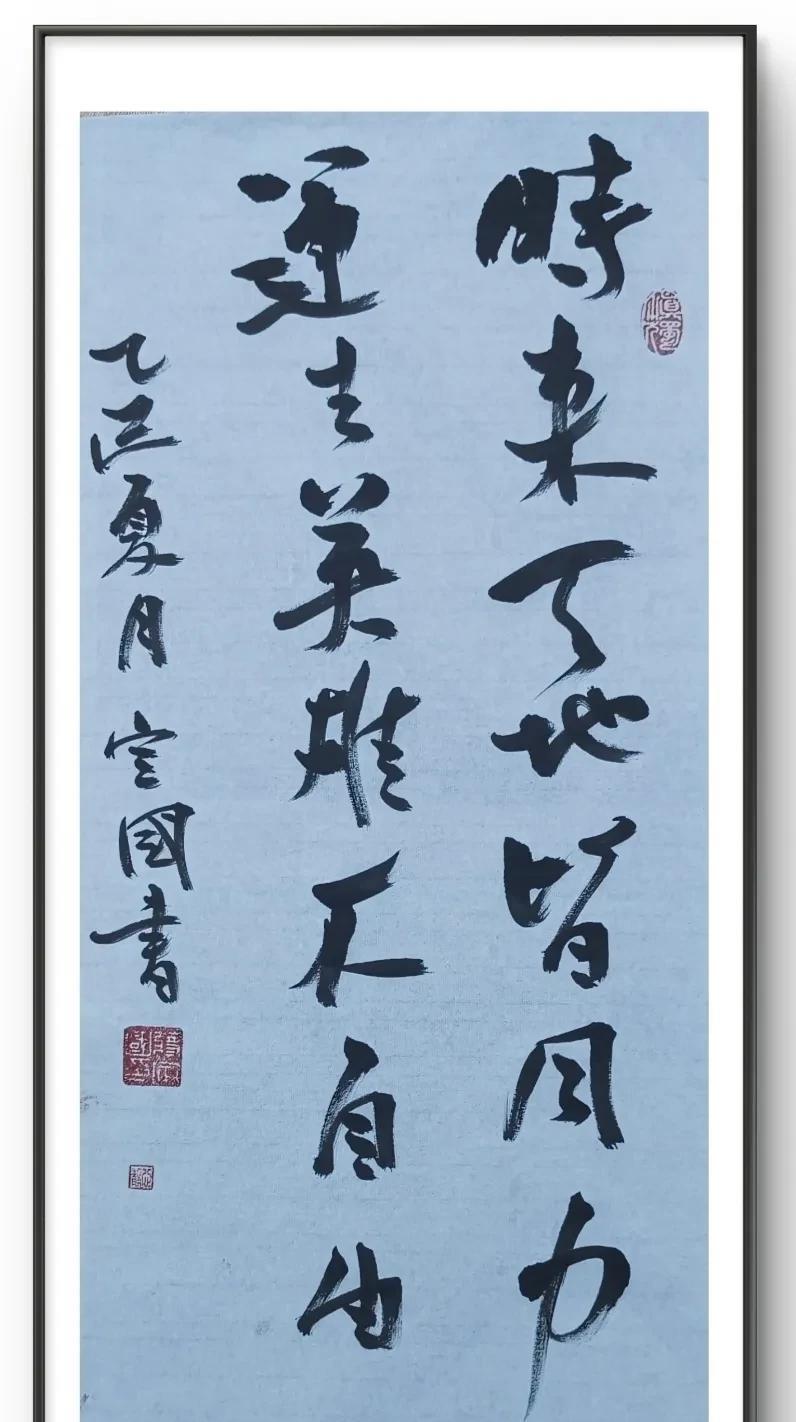 時来天地皆同力
運去英雄不自由
乙巳夏月 定國書